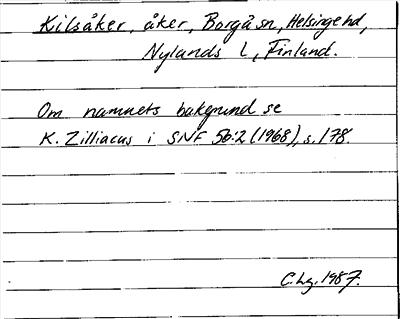 Kilsåker, åker, Borgå sn, Helsinge hd,
Nylands l., Finland.
Om namnets bakgrund se
K. Zilliacus i SNF 56:2 (1968), s. 178.
C.Lg. 1987.